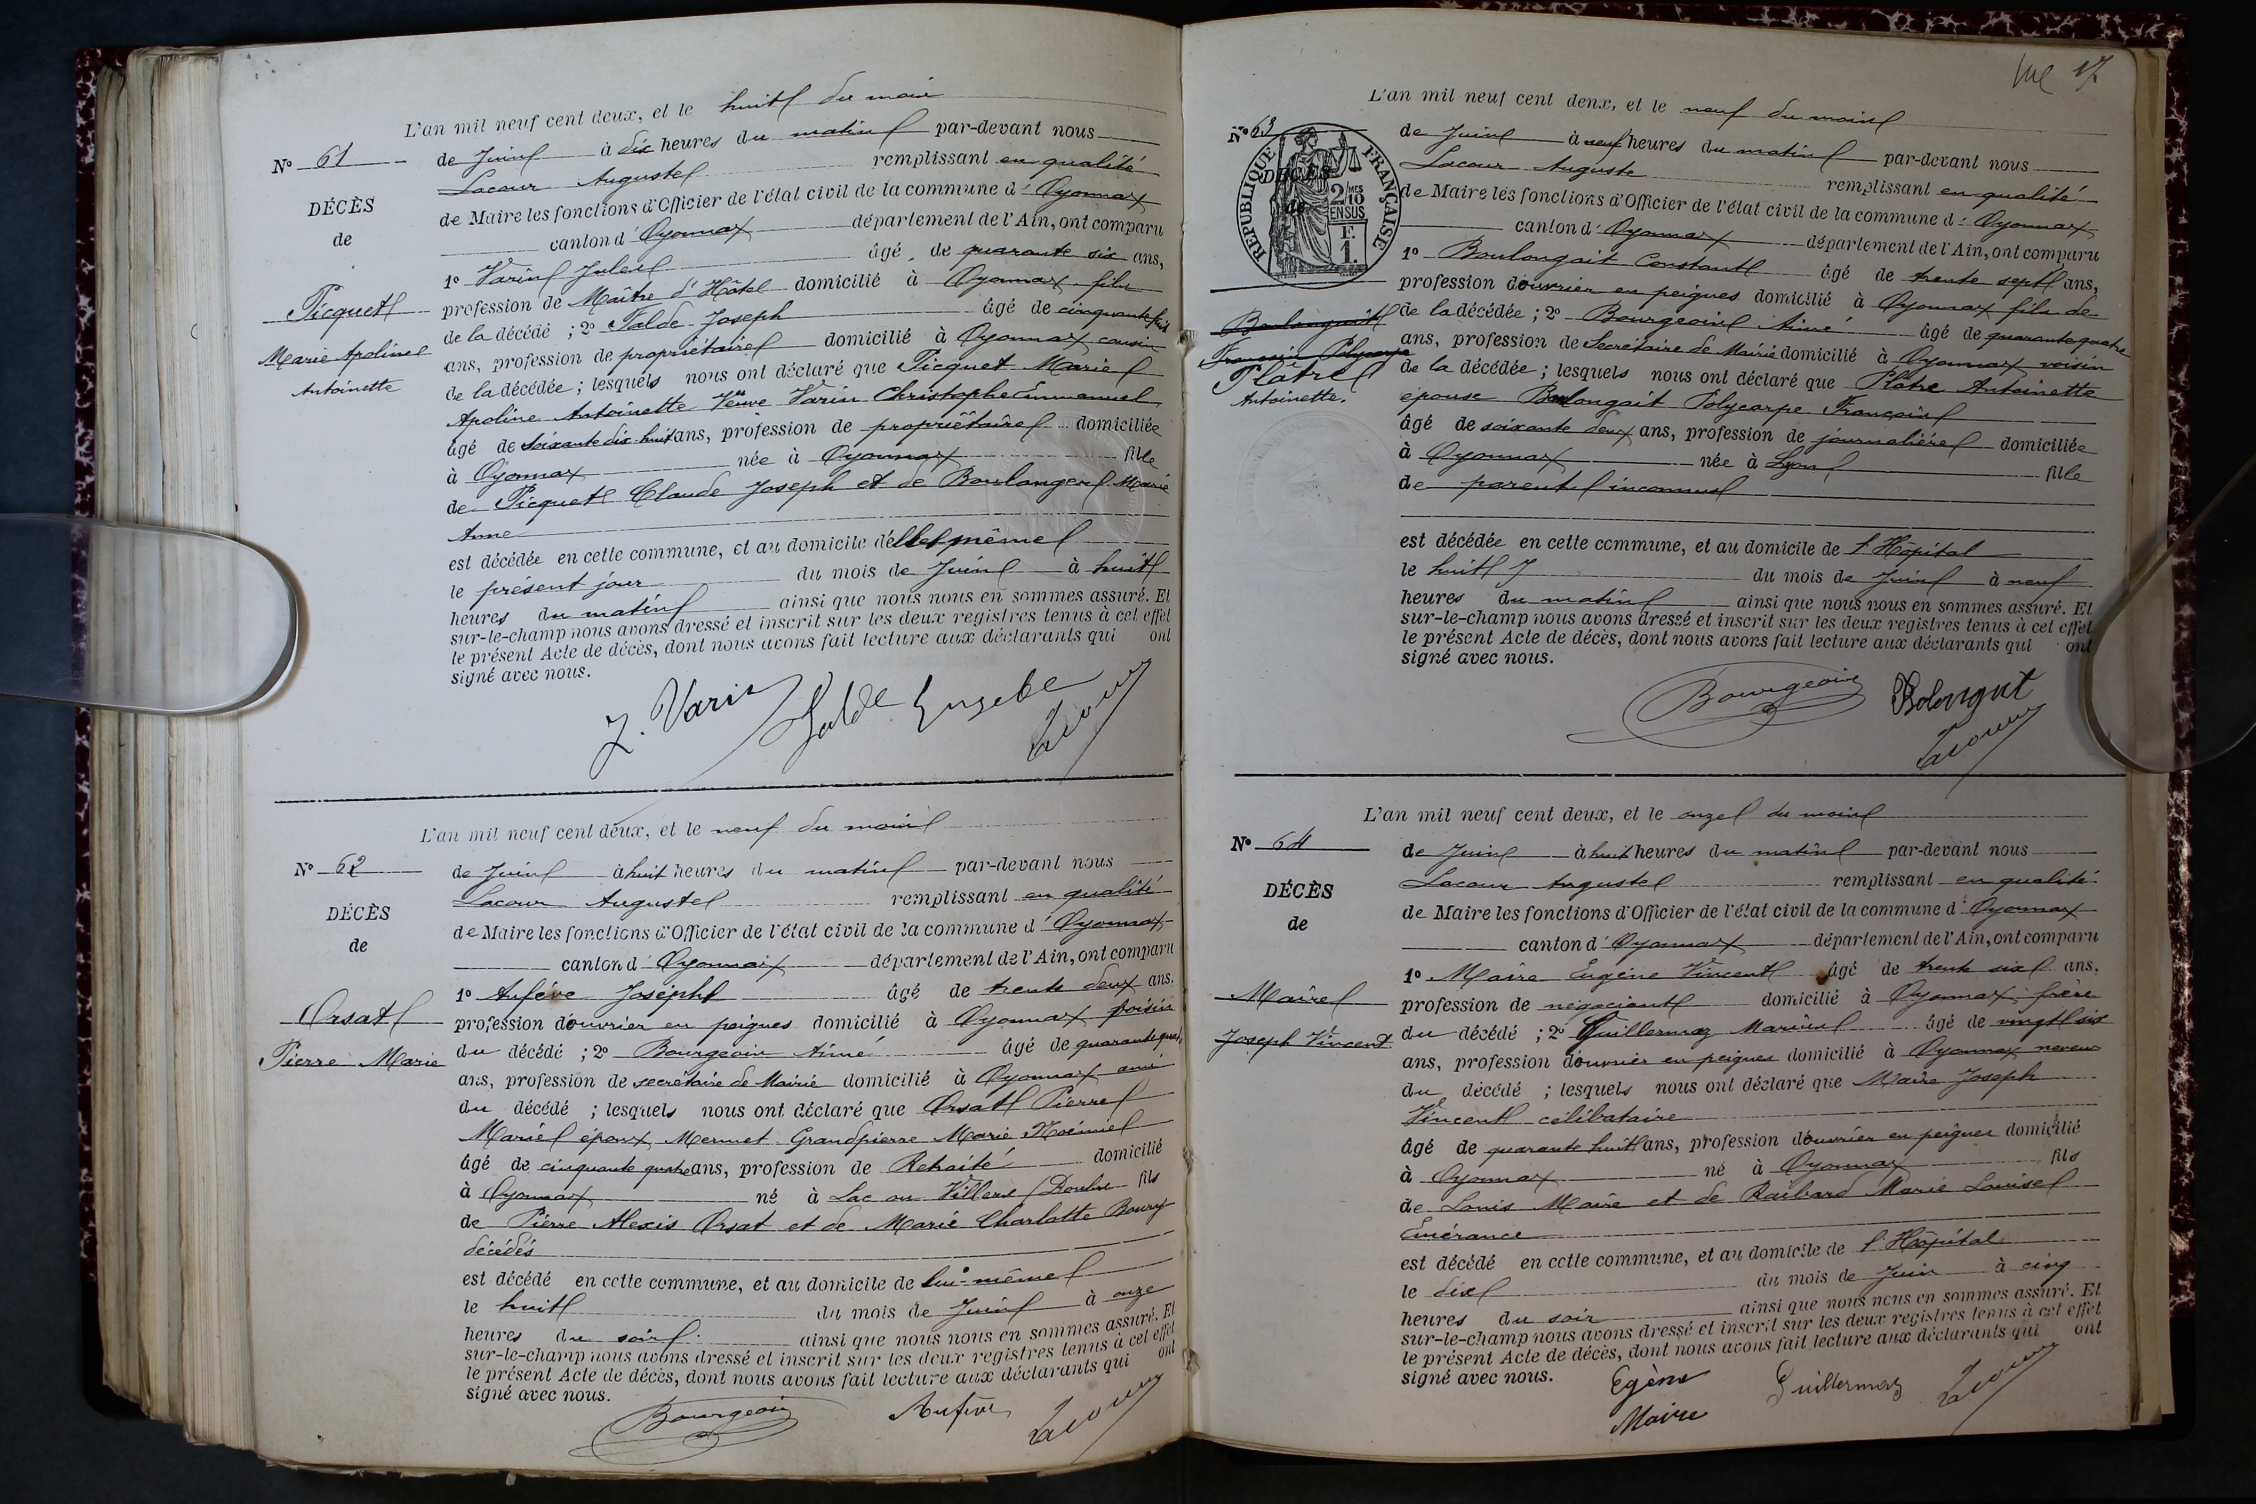 L'an mil neuf cent deux, et le huit du mois
N° 61
de Juin à dix heures du matin par-devant nous
Lacour Auguste remplissant en qualité
DÉCÈS
de Maire les fonctions d'Officier de l'état civil de la commune d' Oyonnax
de
canton d' Oyonnax département de l'Ain, ont comparu
1° Varin Jules âgé de quarante six ans,
Picquet
profession de Maître d'Hôtel domicilié à Oyonnax fils
de la décédé ; 2° Falde Joseph âgé de
Marie Apoline
ans, profession de propriétaire domicilié à Oyonnax cousin
Antoinette
de la décédée ; lesquels nous ont déclaré que Picquet Marie
Apoline Antoinette Veuve Varin Christophe Emmanuel
âgé de soixante dix-huit ans, profession de propriétaire domiciliée
à Oyonnax née à Oyonnax fille
de Picquet Claude Joseph et de Boulanger Marie
Anne
est décédée en cette commune, et au domicile d'elle même
le présent jour du mois de Juin à huit
heures du matin ainsi que nous nous en sommes assuré. Et
sur-le-champ nous avons dressé et inscrit sur les deux registres tenus à cet effet
le présent Acte de décès, dont nous avons fait lecture aux déclarants qui ont
signé avec nous.
J. Varin Falde Lacour
L'an mil neuf cent deux, et le neuf du mois
N° 62
de Juin à huit heures du matin par-devant nous
Lacour Auguste remplissant en qualité
DÉCÈS
de Maire les fonctions d'Officier de l'état civil de la commune d' Oyonnax
de
canton d' Oyonnax département de l'Ain, ont comparu
1° Aufève Joseph âgé de trente deux ans,
Orsat
profession d'ouvrier en peignes domicilié à Oyonnax voisin
Pierre Marie
du décédé ; 2° Bourgeois Aimé âgé de quarante quatre
ans, profession de secrétaire de Mairie domicilié à Oyonnax ami
du décédé ; lesquels nous ont déclaré que Orsat Pierre
Marie époux Mermet Grandpierre Marie Noémie
âgé de cinquante quatre ans, profession de Retraité domicilié
à Oyonnax né à Lac ou Villers (Doubs fils
de Pierre Alexis Orsat et de Marie Charlotte
décédés
est décédé en cette commune, et au domicile de lui-même
le huit du mois de Juin à onze
heures du soir ainsi que nous nous en sommes assuré. Et
sur-le-champ nous avons dressé et inscrit sur les deux registres tenus à cet effet
le présent Acte de décès, dont nous avons fait lecture aux déclarants qui ont
signé avec nous.
Bourgeois Aufève Lacour
17
L'an mil neuf cent deux, et le neuf du mois
N° 63
de Juin à neuf heures du matin par-devant nous
Lacour Auguste remplissant en qualité
RÉPUBLIQUE FRANÇAISE
2/10 MES
EN SUS
F.
1.
DÉCÈS
de
de Maire les fonctions d'Officier de l'état civil de la commune d' Oyonnax
canton d' Oyonnax département de l'Ain, ont comparu
1° Boulongait Constant âgé de trente sept ans,
profession d'ouvrier en peignes domicilié à Oyonnax fils de
Boulongait
de la décédée ; 2° Bourgeois Aimé âgé de quarante quatre
François Polycarpe
ans, profession de Secrétaire de Mairie domicilié à Oyonnax voisin
Plâtre
de la décédée ; lesquels nous ont déclaré que Plâtre Antoinette
Antoinette.
épouse Boulongait Polycarpe François
âgé de soixante deux ans, profession de journalière domiciliée
à Oyonnax née à Lyon fille
de parents inconnus
est décédée en cette commune, et au domicile de l'Hôpital
le huit du mois de Juin à neuf
heures du matin ainsi que nous nous en sommes assuré. Et
sur-le-champ nous avons dressé et inscrit sur les deux registres tenus à cet effet
le présent Acte de décès, dont nous avons fait lecture aux déclarants qui ont
signé avec nous.
Bourgeois Bolongat
Lacour
L'an mil neuf cent deux, et le onze du mois
N° 64
de Juin à huit heures du matin par-devant nous
Lacour Auguste remplissant en qualité
DÉCÈS
de Maire les fonctions d'Officier de l'état civil de la commune d' Oyonnax
de
canton d' Oyonnax département de l'Ain, ont comparu
1° Maire Eugène Vincent âgé de trente six ans,
Maire
profession de négociant domicilié à Oyonnax frère
Joseph Vincent
du décédé ; 2° Guillermoz Marius âgé de vingt six
ans, profession d'ouvrier en peignes domicilié à Oyonnax neveu
du décédé ; lesquels nous ont déclaré que Maire Joseph
Vincent célibataire
âgé de quarante huit ans, profession d'ouvrier en peignes domicilié
à Oyonnax né à Oyonnax fils
de Louis Maire et de Marie Louise
Emérance
est décédé en cette commune, et au domicile de l'Hôpital
le dix du mois de Juin à cinq
heures du soir ainsi que nous nous en sommes assuré. Et
sur-le-champ nous avons dressé et inscrit sur les deux registres tenus à cet effet
le présent Acte de décès, dont nous avons fait lecture aux déclarants qui ont
signé avec nous.
Egène Guillermoz Lacour
Maire